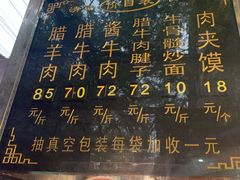 腊羊肉 85 元/斤
腊牛肉 70 元/斤
酱牛肉 72 元/斤
腊牛肉腱子 72 元/斤
牛骨髓炒面 10 元/斤
肉夹馍 18 元/个
抽真空包装每袋加收一元